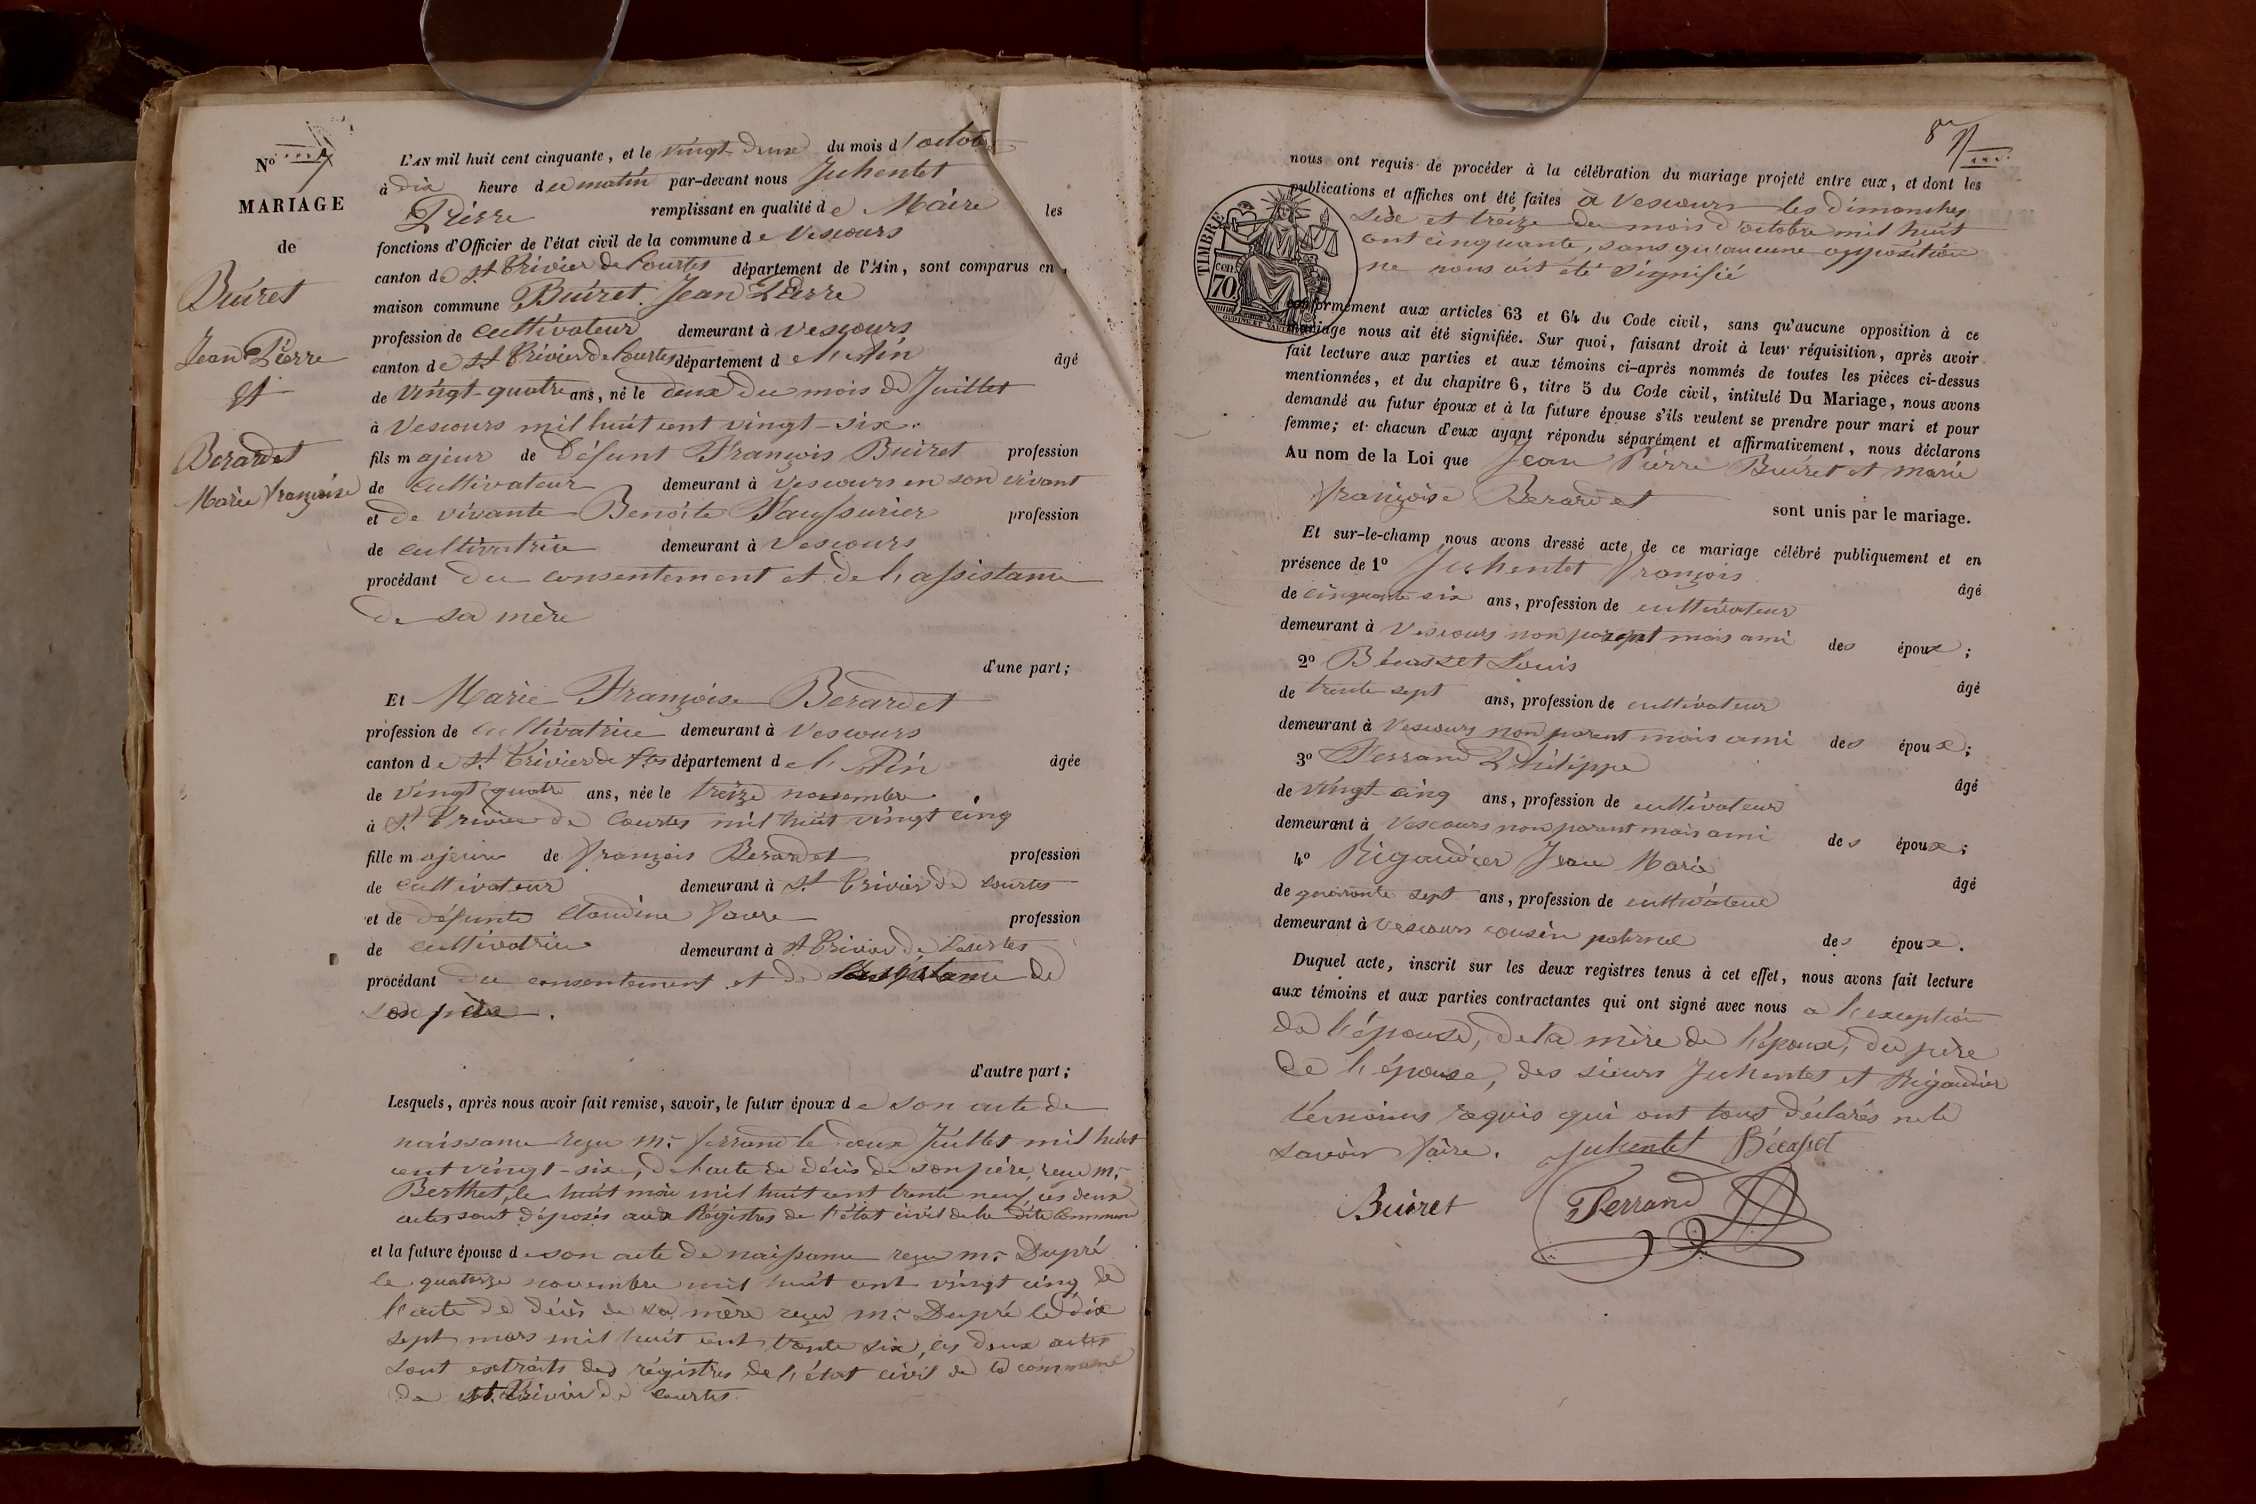 N° 7
MARIAGE
de
Buiret
Jean Pierre
Et
Berardet
Marie Françoise
L'AN mil huit cent cinquante, et le vingt deux du mois d'octobre
à dix heure du matin par-devant nous Juhentet
Pierre remplissant en qualité de Maire les
fonctions d'Officier de l'état civil de la commune de Vescours
canton de St Trivier de Courtes département de l'Ain, sont comparus en
maison commune Buiret Jean Pierre
profession de cultivateur demeurant à Vescours
canton de St Trivier de Courtes département de l'Ain âgé
de vingt-quatre ans, né le deux du mois de Juillet
à Vescours mil huit cent vingt-six.
fils majeur de défunt François Buiret profession
de cultivateur demeurant à Vescours en son vivant
et de vivante Benoîte Vaussurier profession
de cultivatrice demeurant à Vescours
procédant du consentement et de l'assistance
de sa mère
d'une part;
Et Marie Françoise Berardet
profession de cultivatrice demeurant à Vescours
canton de St Trivier de Ctes département de l'Ain âgée
de vingt quatre ans, née le treize novembre
à St Trivier de Courtes mil huit vingt cinq
fille majeure de François Berardet profession
de cultivateur demeurant à St Trivier de Courtes
et de défunte Claudine Favre profession
de cultivatrice demeurant à St Trivier de Courtes
procédant du consentement et de l'assistance de
son père.
d'autre part;
Lesquels, après nous avoir fait remise, savoir, le futur époux de son acte de
naissance reçu Mr Ferrand le deux Juillet mil huit
cent vingt-six, de l'acte de décès de son père, reçu Mr
Berthet, le huit mai mil huit cent trente neuf, ces deux
actes sont déposés aux Régistres de l'état civil de la dite Commune
et la future épouse de son acte de naissance reçu Mr Dupré
le quatorze novembre mil huit cent vingt cinq de
l'acte de décès de sa mère reçu Mr Dupré le dix
sept mars mil huit cent trente six, les deux actes
sont extraits des régistres de l'état civil de la commune
de St Trivier de Courtes
TIMBRE
70
nous ont requis de procéder à la célébration du mariage projeté entre eux, et dont les
publications et affiches ont été faites à Vescours les dimanches
Seize et treize du mois d'octobre mil huit
cent cinquante, sans qu'aucune opposition
ne nous ait été signifié
conformément aux articles 63 et 64 du Code civil, sans qu'aucune opposition à ce
mariage nous ait été signifiée. Sur quoi, faisant droit à leur réquisition, après avoir
fait lecture aux parties et aux témoins ci-après nommés de toutes les pièces ci-dessus
mentionnées, et du chapitre 6, titre 5 du Code civil, intitulé Du Mariage, nous avons
demandé au futur époux et à la future épouse s'ils veulent se prendre pour mari et pour
femme; et chacun d'eux ayant répondu séparément et affirmativement, nous déclarons
Au nom de la Loi que Jean Pierre Buiret et Marie
Françoise Berardet sont unis par le mariage.
Et sur-le-champ nous avons dressé acte de ce mariage célébré publiquement et en
présence de 1° Juhentet François âgé
de cinquante six ans, profession de cultivateur
demeurant à Vescours non parent mais ami des époux;
2° Bécasset Louis âgé
de trente sept ans, profession de cultivateur
demeurant à Vescours non parent mais ami des époux;
3° Ferrand Philippe âgé
de vingt-cinq ans, profession de cultivateur
demeurant à Vescours non parent mais ami des époux;
4° Rigaudier Jean Marie âgé
de quarante sept ans, profession de cultivateur
demeurant à Vescours cousin paternel des époux.
Duquel acte, inscrit sur les deux registres tenus à cet effet, nous avons fait lecture
aux témoins et aux parties contractantes qui ont signé avec nous à l'exception
de l'épouse, de la mère de l'époux, du père
de l'épouse, des sieurs Juhentet et Rigaudier
témoins requis qui ont tous déclarés ne le
savoir faire. Juhentet Bécasset
Buiret Ferrand